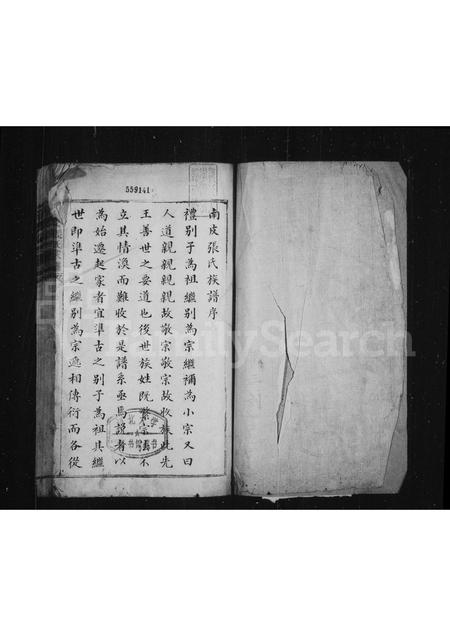 559141
南皮張氏族譜序
禮別子為祖繼別為宗繼禰為小宗又曰
人道親親親親故敬宗敬宗故收族此先
王善世之要道也後世族姓既繁宗法不
立其情渙而難收於是譜系亟焉說者以
為始遷起家者宜準古之別子為祖其繼
世即準古之繼別為宗遞相傳衍而各從
FamilySearch